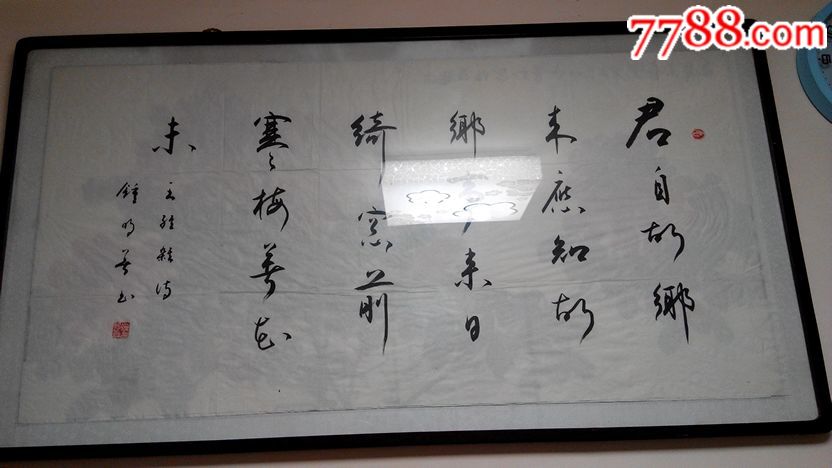 7788.com
君自故鄉
来應知故
鄉事来日
綺窓前
寒梅著花
未
王維雜诗
鍾明善书